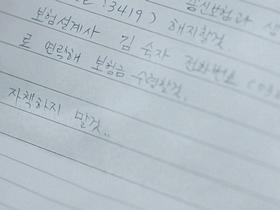 : 3419) 해지할것
보험설계사 김 숙자 전화번호 (03
로 연락해 보험금 수령할것
자책하지 말것..